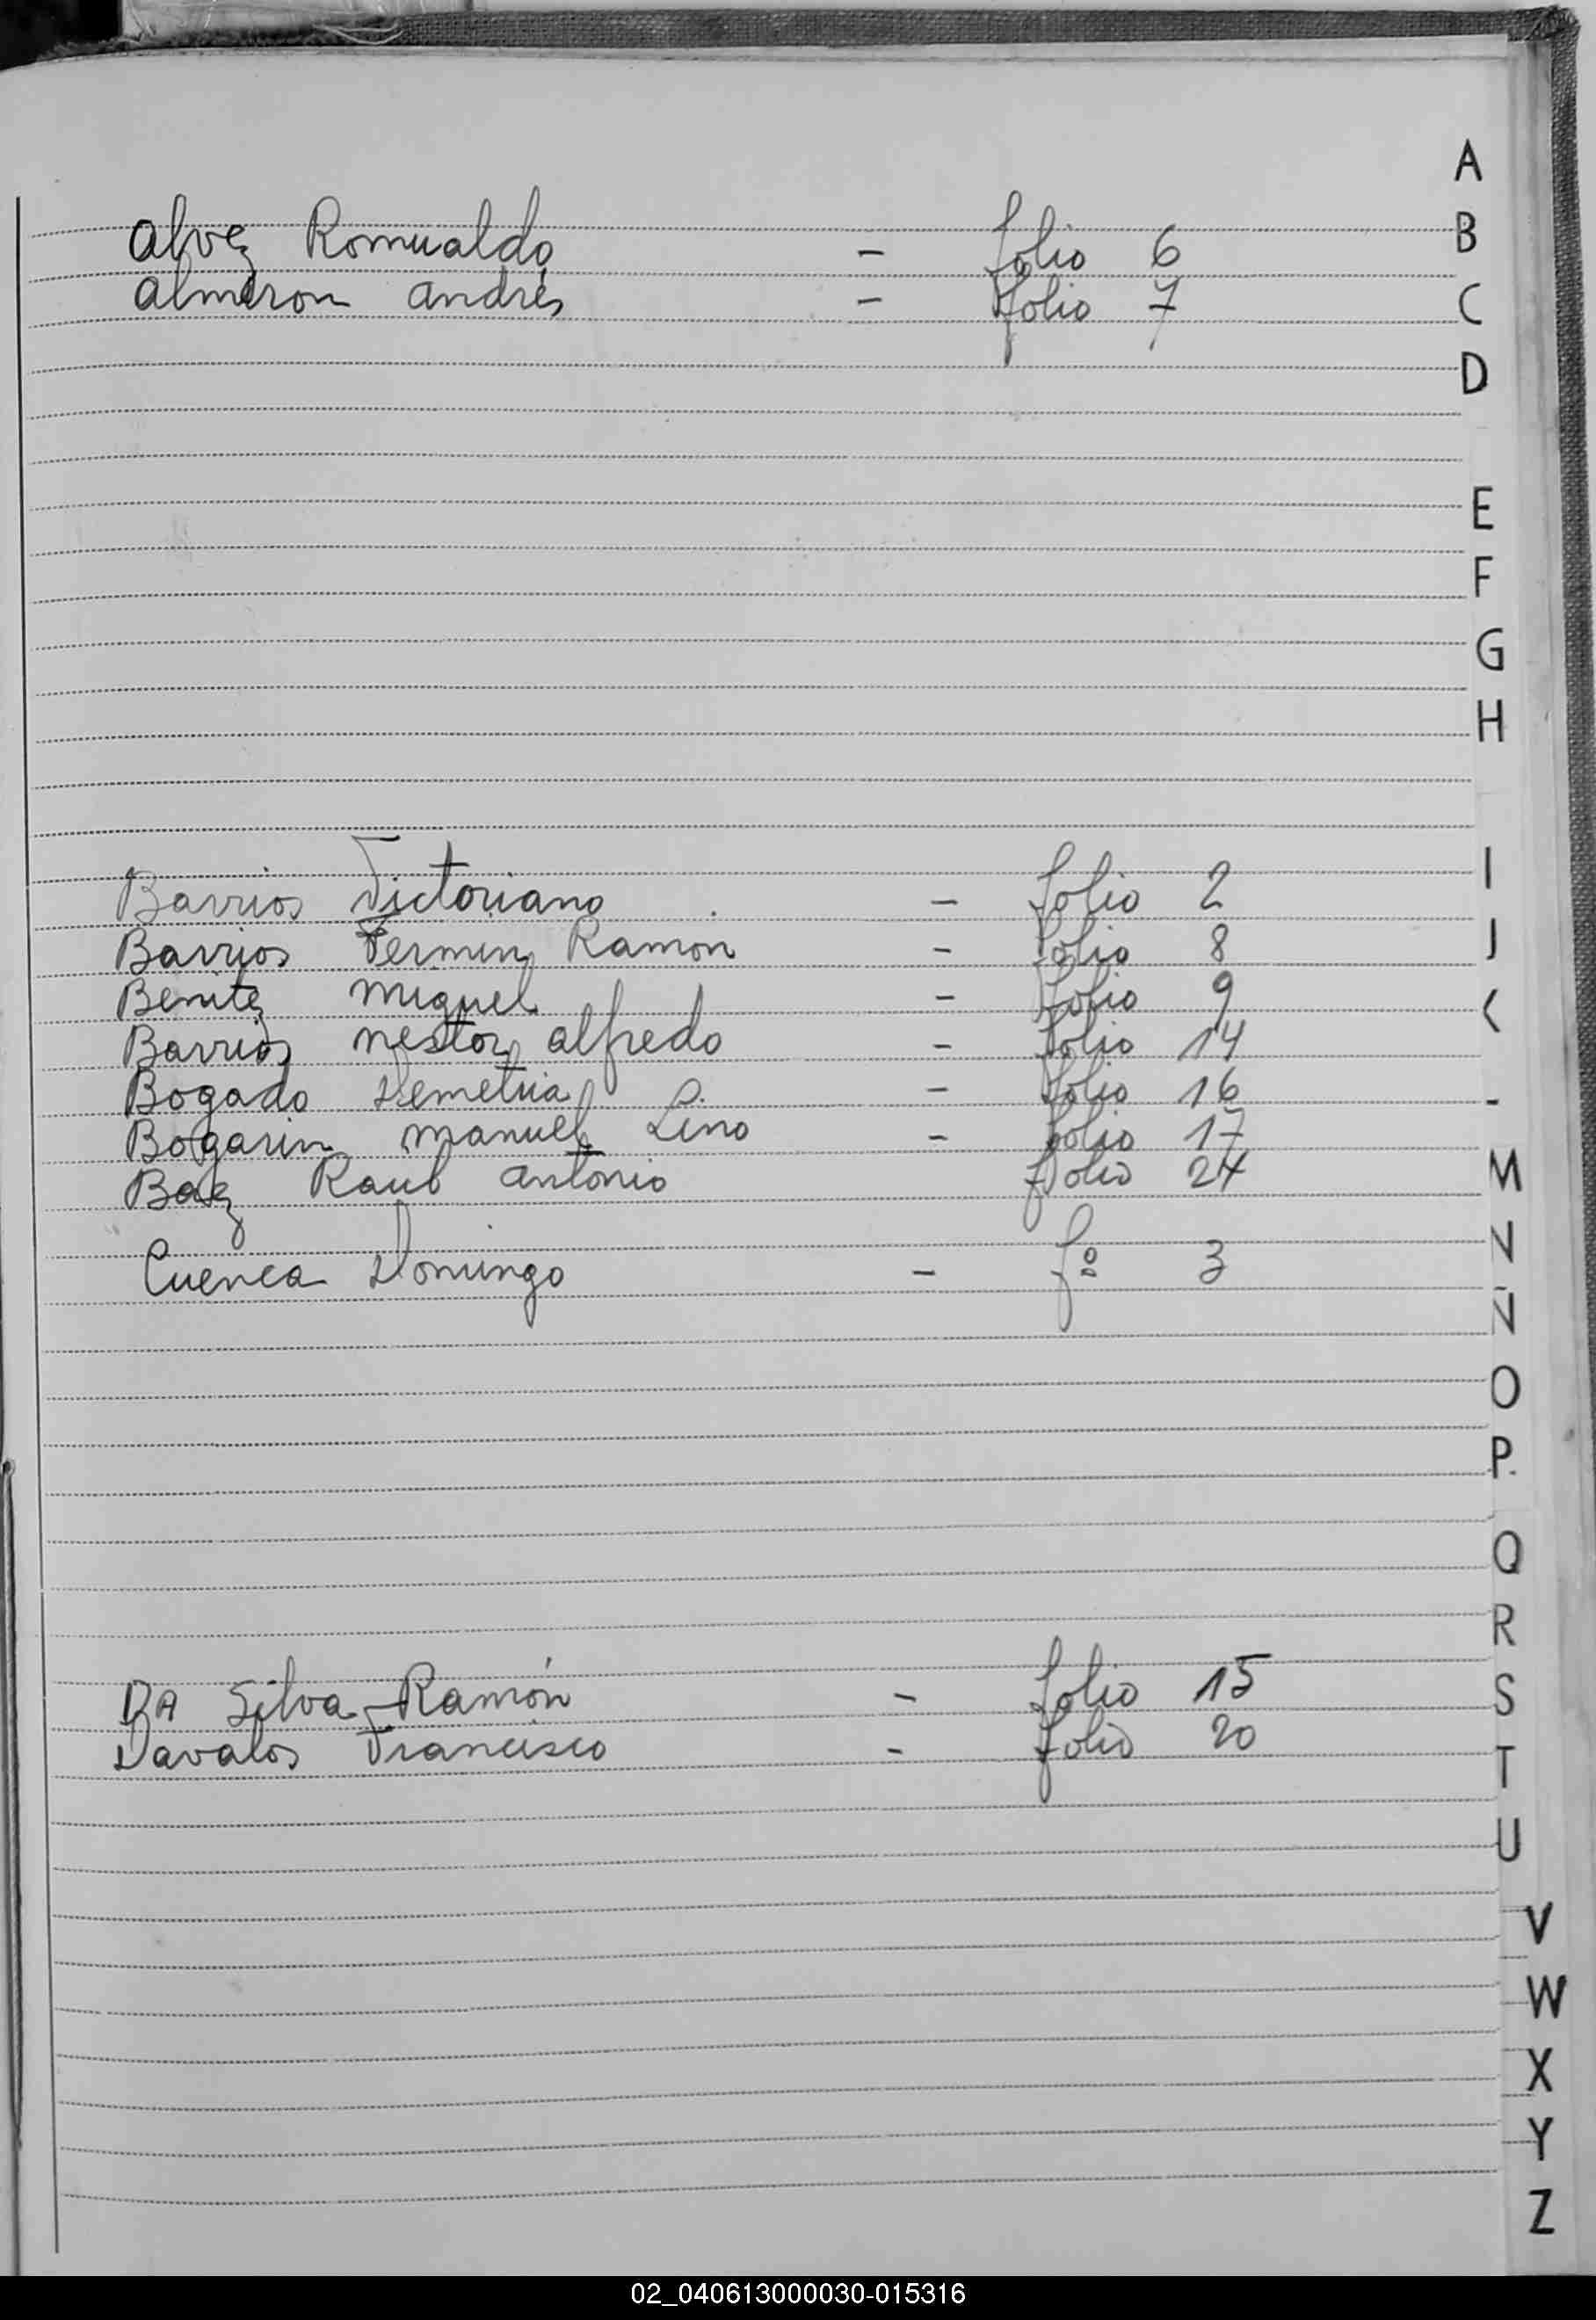 A
B
Alvez Romualdo - folio 6
Almiron Andrés - folio 7
C
D
E
F
G
H
I
Barrios Victoriano - folio 2
Barrios Fermin Ramon - folio 8
J
Benitez Miguel - folio 9
K
Barrios Nestor Alfredo - folio 14
Bogado Demetria - folio 16
Bogarin Manuel Lino - folio 17
Baez Raul Antonio folio 24
M
N
Cuenca Domingo - fº 3
Ñ
O
P
Q
R
DA Silva Ramón - folio 15
S
Davalos Francisco - folio 20
T
U
V
W
X
Y
Z
02_040613000030-015316